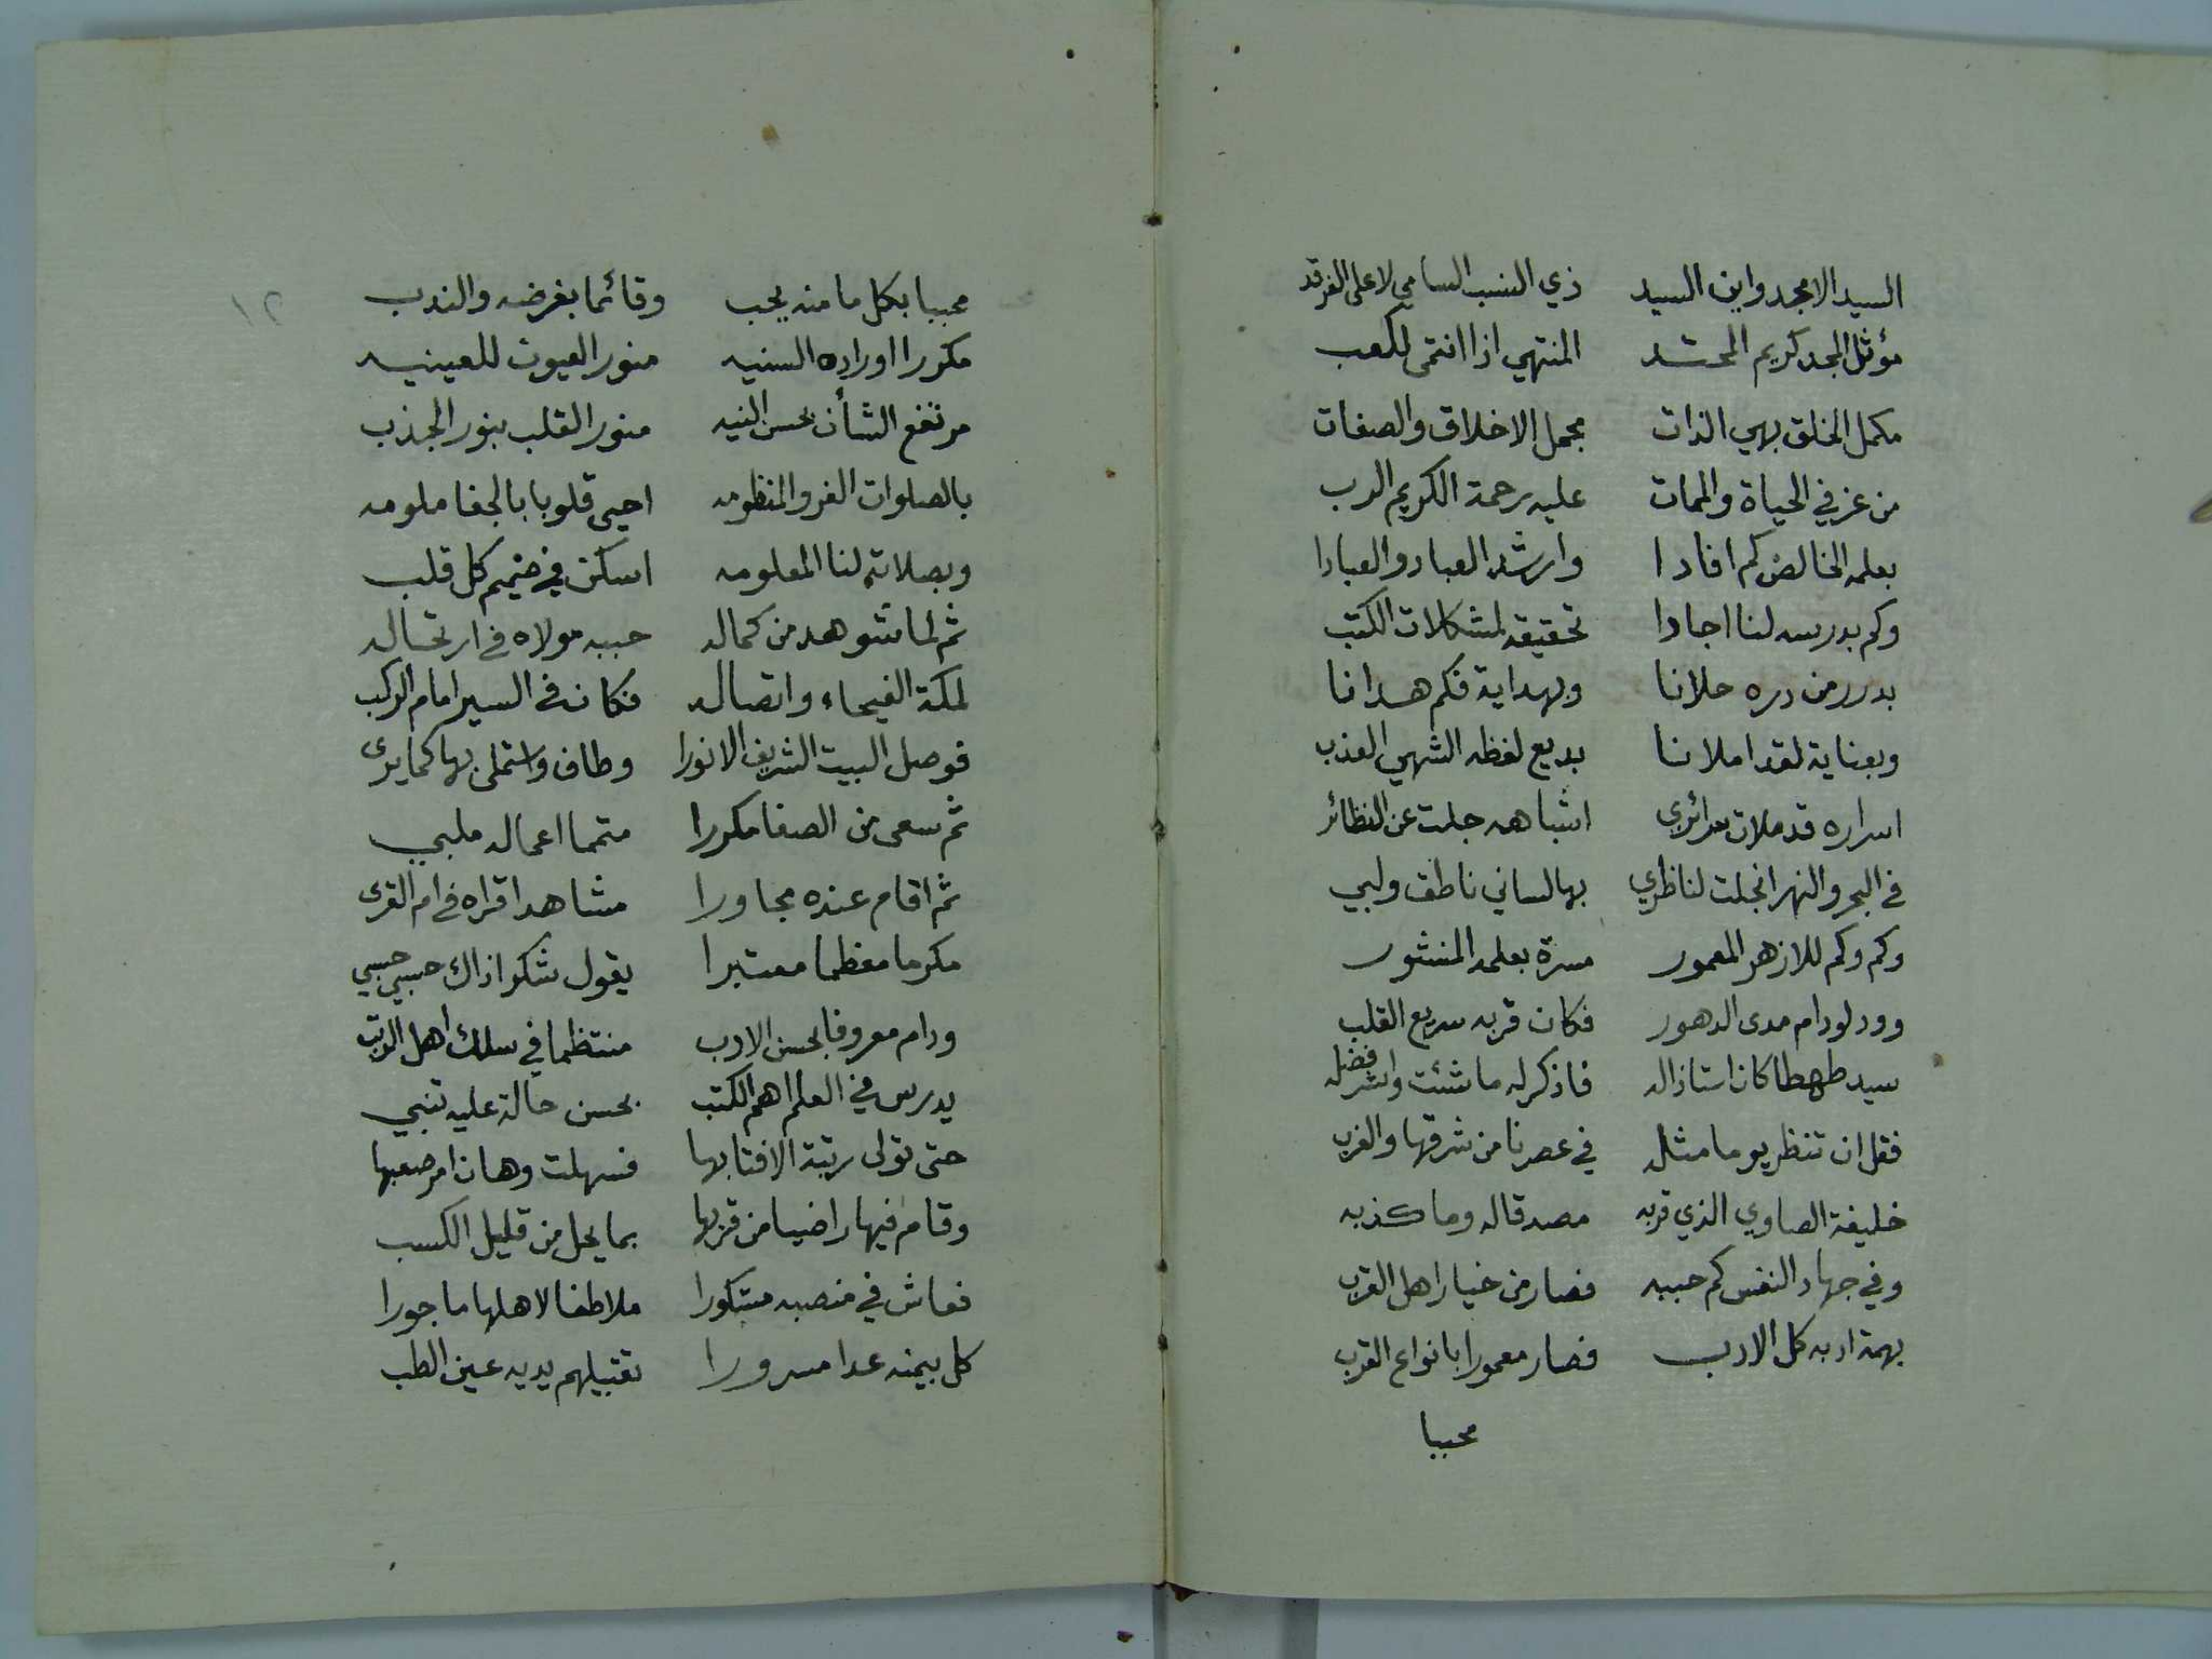 السيد الامجد وابن السيد ذي النسب السامي لاعلى الفرقد
مؤثل المجد كريم المحتد المنتهي اذا انتمى لكعب
مكمل الخلق بهي الذات مجمل الاخلاق والصفات
من عز في الحياة والممات عليه رحمة الكريم الرب
بعلمه الخالص كم افادا وارشد العباد والعبادا
وكم بدرسه لنا اجادا تحقيقه لمشكلات الكتب
بدرر من دره حلانا وبهداية فكم هدانا
وبعناية لقد املانا بديع لفظه الشهي العذب
اسراره قد ملات سرائري اشباهه جلت عن النظائر
في البحر والنهر انجلت لناظري بها لساني ناطق ولبي
وكم وكم للازهر المعمور مسرة بعلمه المنشور
وود لو دام مدى الدهور فكان قربه سريع القلب
سيد طهطا كان استاذا له فاذكر له ما شئت وانشر فضله
فقل ان تنظر يوما مثله في عصرنا من شرقها والغرب
خليفة الصاوي الذي قربه مصدقا له وما كذبه
وفي جهاد النفس كم حببه فصار من خيار اهل القرب
بهمة ادبه كل الادب فصار معمورا بانواع القرب
محببا
١٢
محببا بكل ما منه يحب وقائما بفرضه والندب
مكررا اوراده السنيه منور العيون للعينيه
مرتفع الشأن بحسن النيه منور القلب بنور الجذب
بالصلوات الغر والمنظومه احيى قلوبا بالجفا ملومه
وبصلاته لنا المعلومه اسكن في صميم كل قلب
ثم لما شوهد من كماله حببه مولاه في ارتحاله
لمكة الفيحاء واتصاله فكان في السير امام الركب
فوصل البيت الشريف الانورا وطاف واستملى بها كما يرى
ثم سعى من الصفا مكررا متمما اعماله ملبي
ثم اقام عنده مجاورا مشاهدا قراه في ام القرى
مكرما معظما معتبرا يقول شكرا ذاك حسبي حسبي
ودام معروفا بحسن الادب منتظما في سلك اهل الرتب
يدرس في العلم اهم الكتب بحسن حالة عليه تنبي
حتى تولى رتبة الافتا بها فسهلت وهان امر صعبها
وقام فيها راضيا من قربها بما يحل من قليل الكسب
فعاش في منصبه مشكورا ملاطفا لاهلها ماجورا
كل بيمنه غدا مسرورا تقبيلهم يديه عين الطب